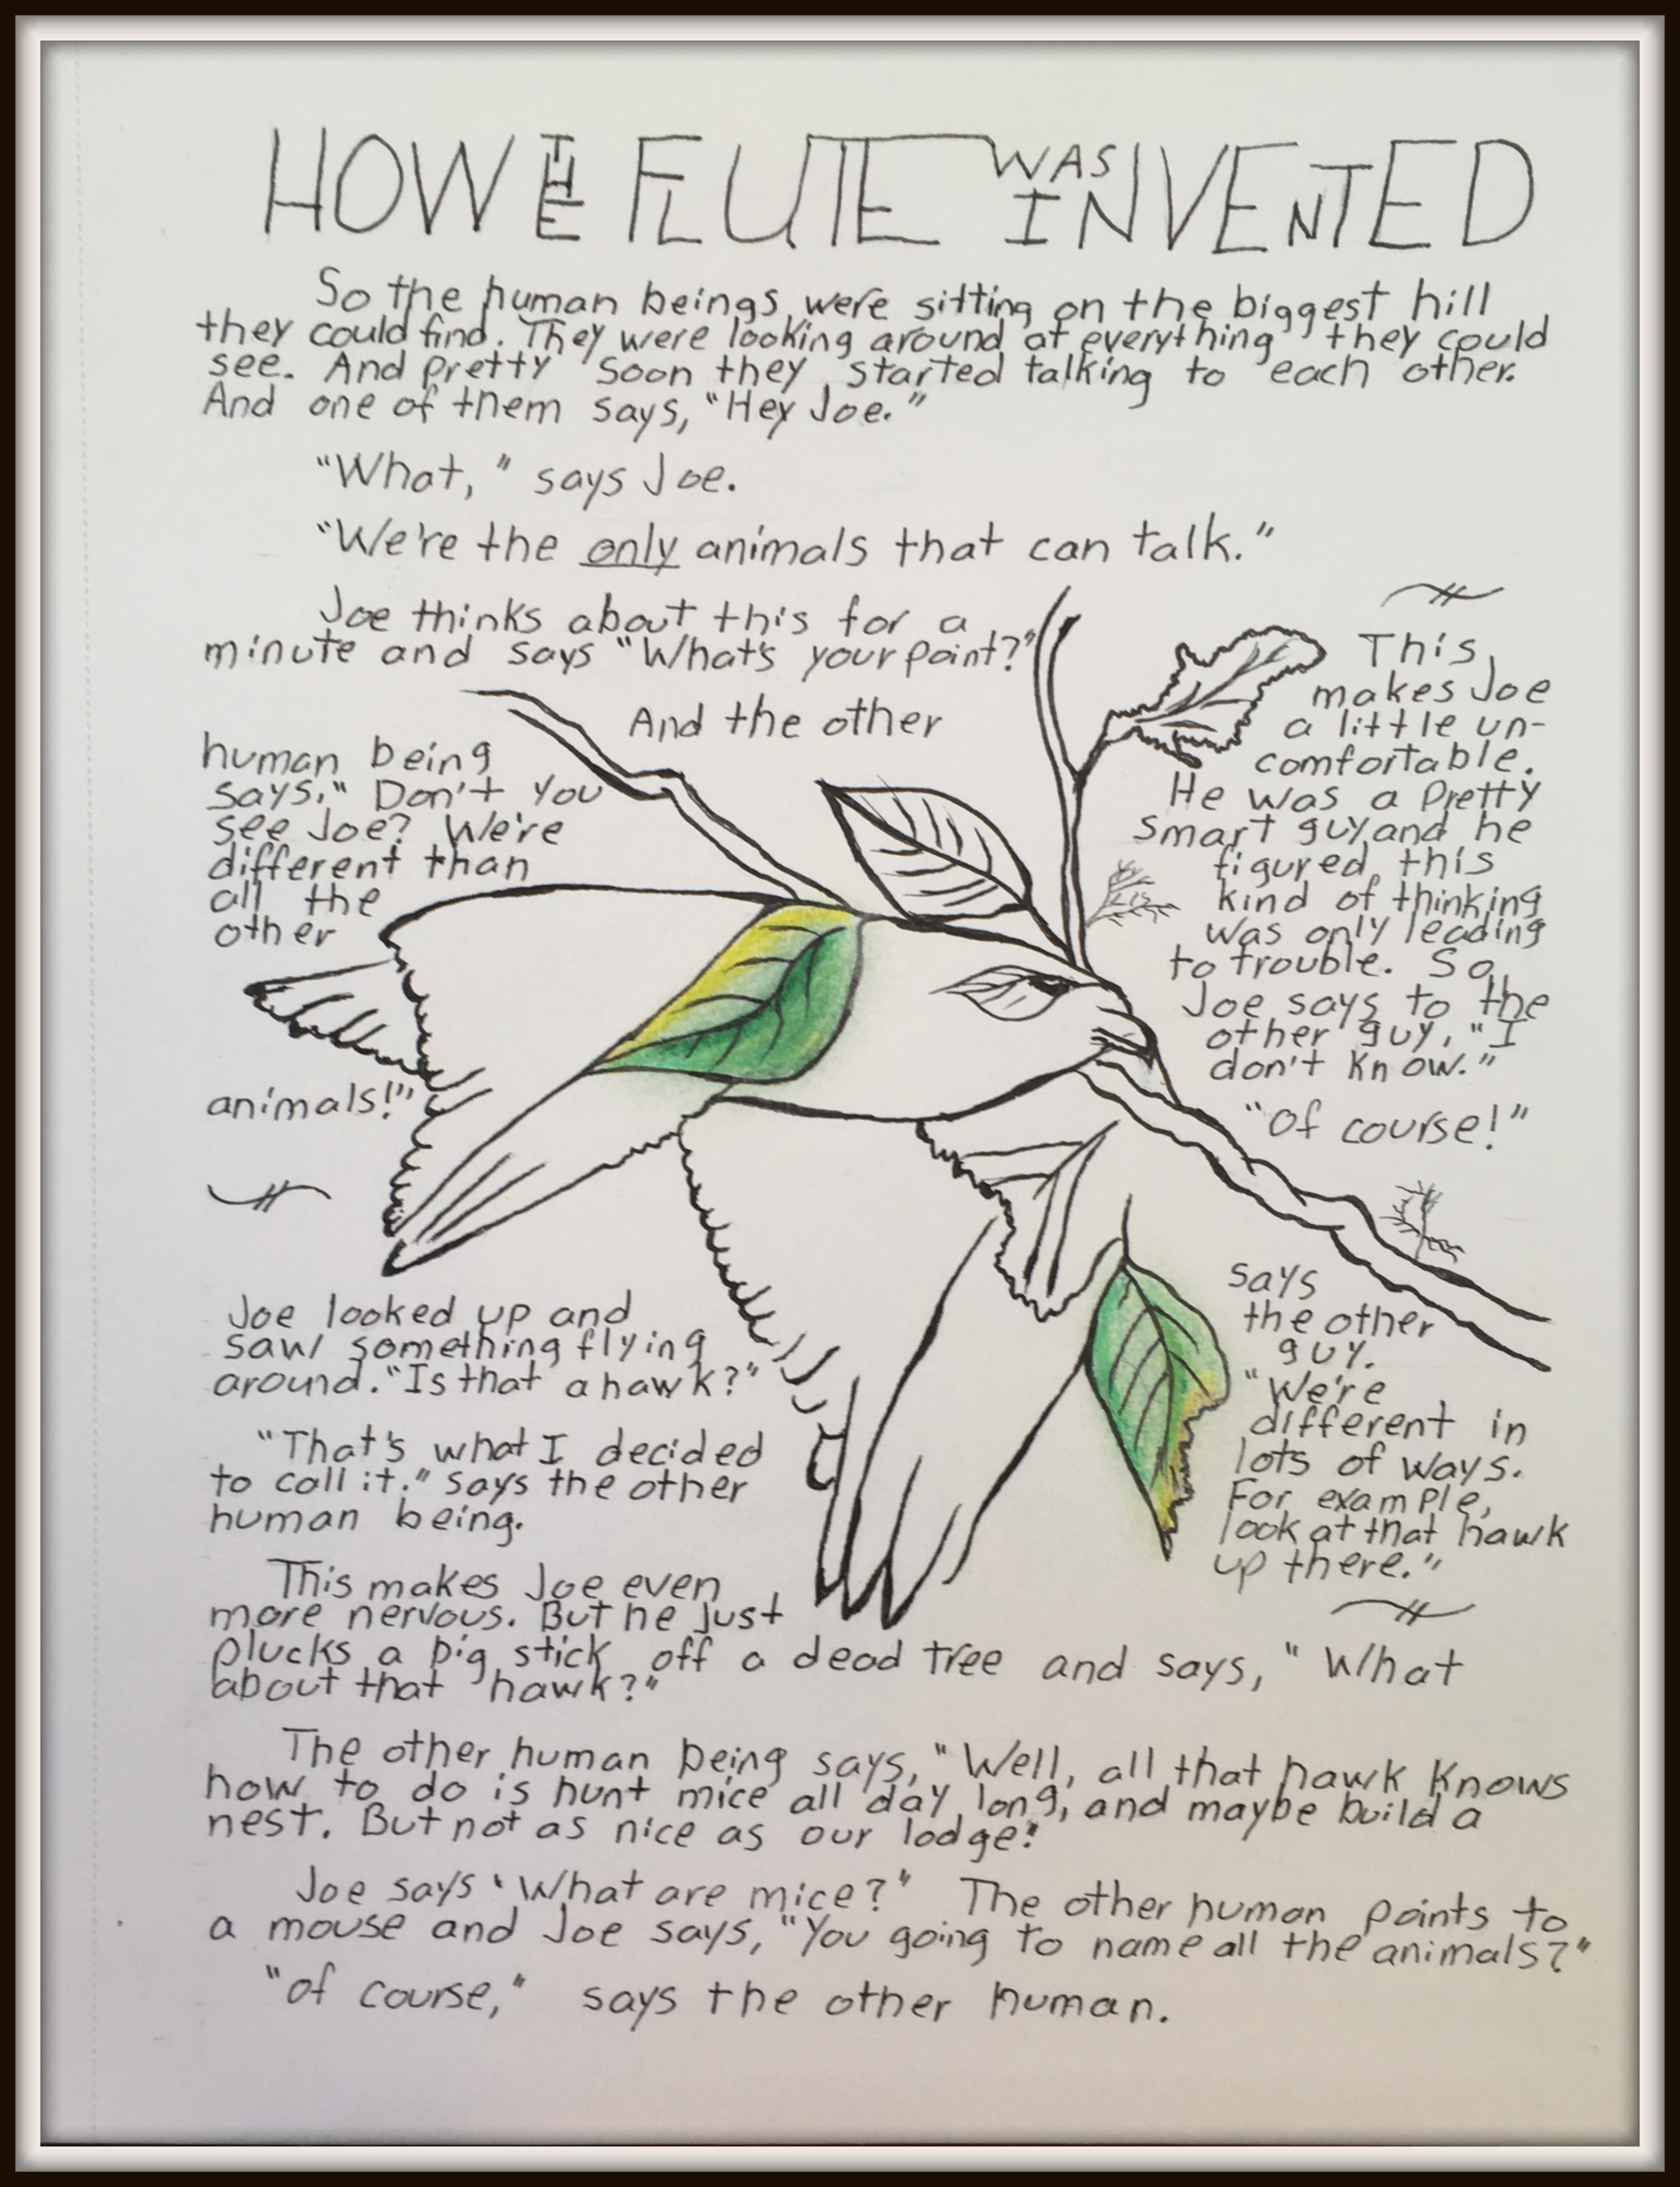 HOW THE FLUTE WAS INVENTED
So the human beings were sitting on the biggest hill
they could find. They were looking around at everything they could
see. And pretty soon they started talking to each other.
And one of them says, "Hey Joe."
"What," says Joe.
"We're the only animals that can talk."
Joe thinks about this for a
minute and says "What's your point?"
And the other
human being
says, "Don't you
see Joe? We're
different than
all the
other
animals!"
This
makes Joe
a little un-
comfortable.
He was a pretty
smart guy and he
figured this
kind of thinking
was only leading
to trouble. So
Joe says to the
other guy, "I
don't know."
"Of course!"
says
the other
guy.
"We're
different in
lots of ways.
For example,
look at that hawk
up there."
Joe looked up and
saw something flying
around. "Is that a hawk?"
"That's what I decided
to call it." says the other
human being.
This makes Joe even
more nervous. But he just
plucks a big stick off a dead tree and says, "What
about that hawk?"
The other human being says, "Well, all that hawk knows
how to do is hunt mice all day long, and maybe build a
nest. But not as nice as our lodge."
Joe says "What are mice?" The other human points to
a mouse and Joe says, "You going to name all the animals?"
"Of course," says the other human.